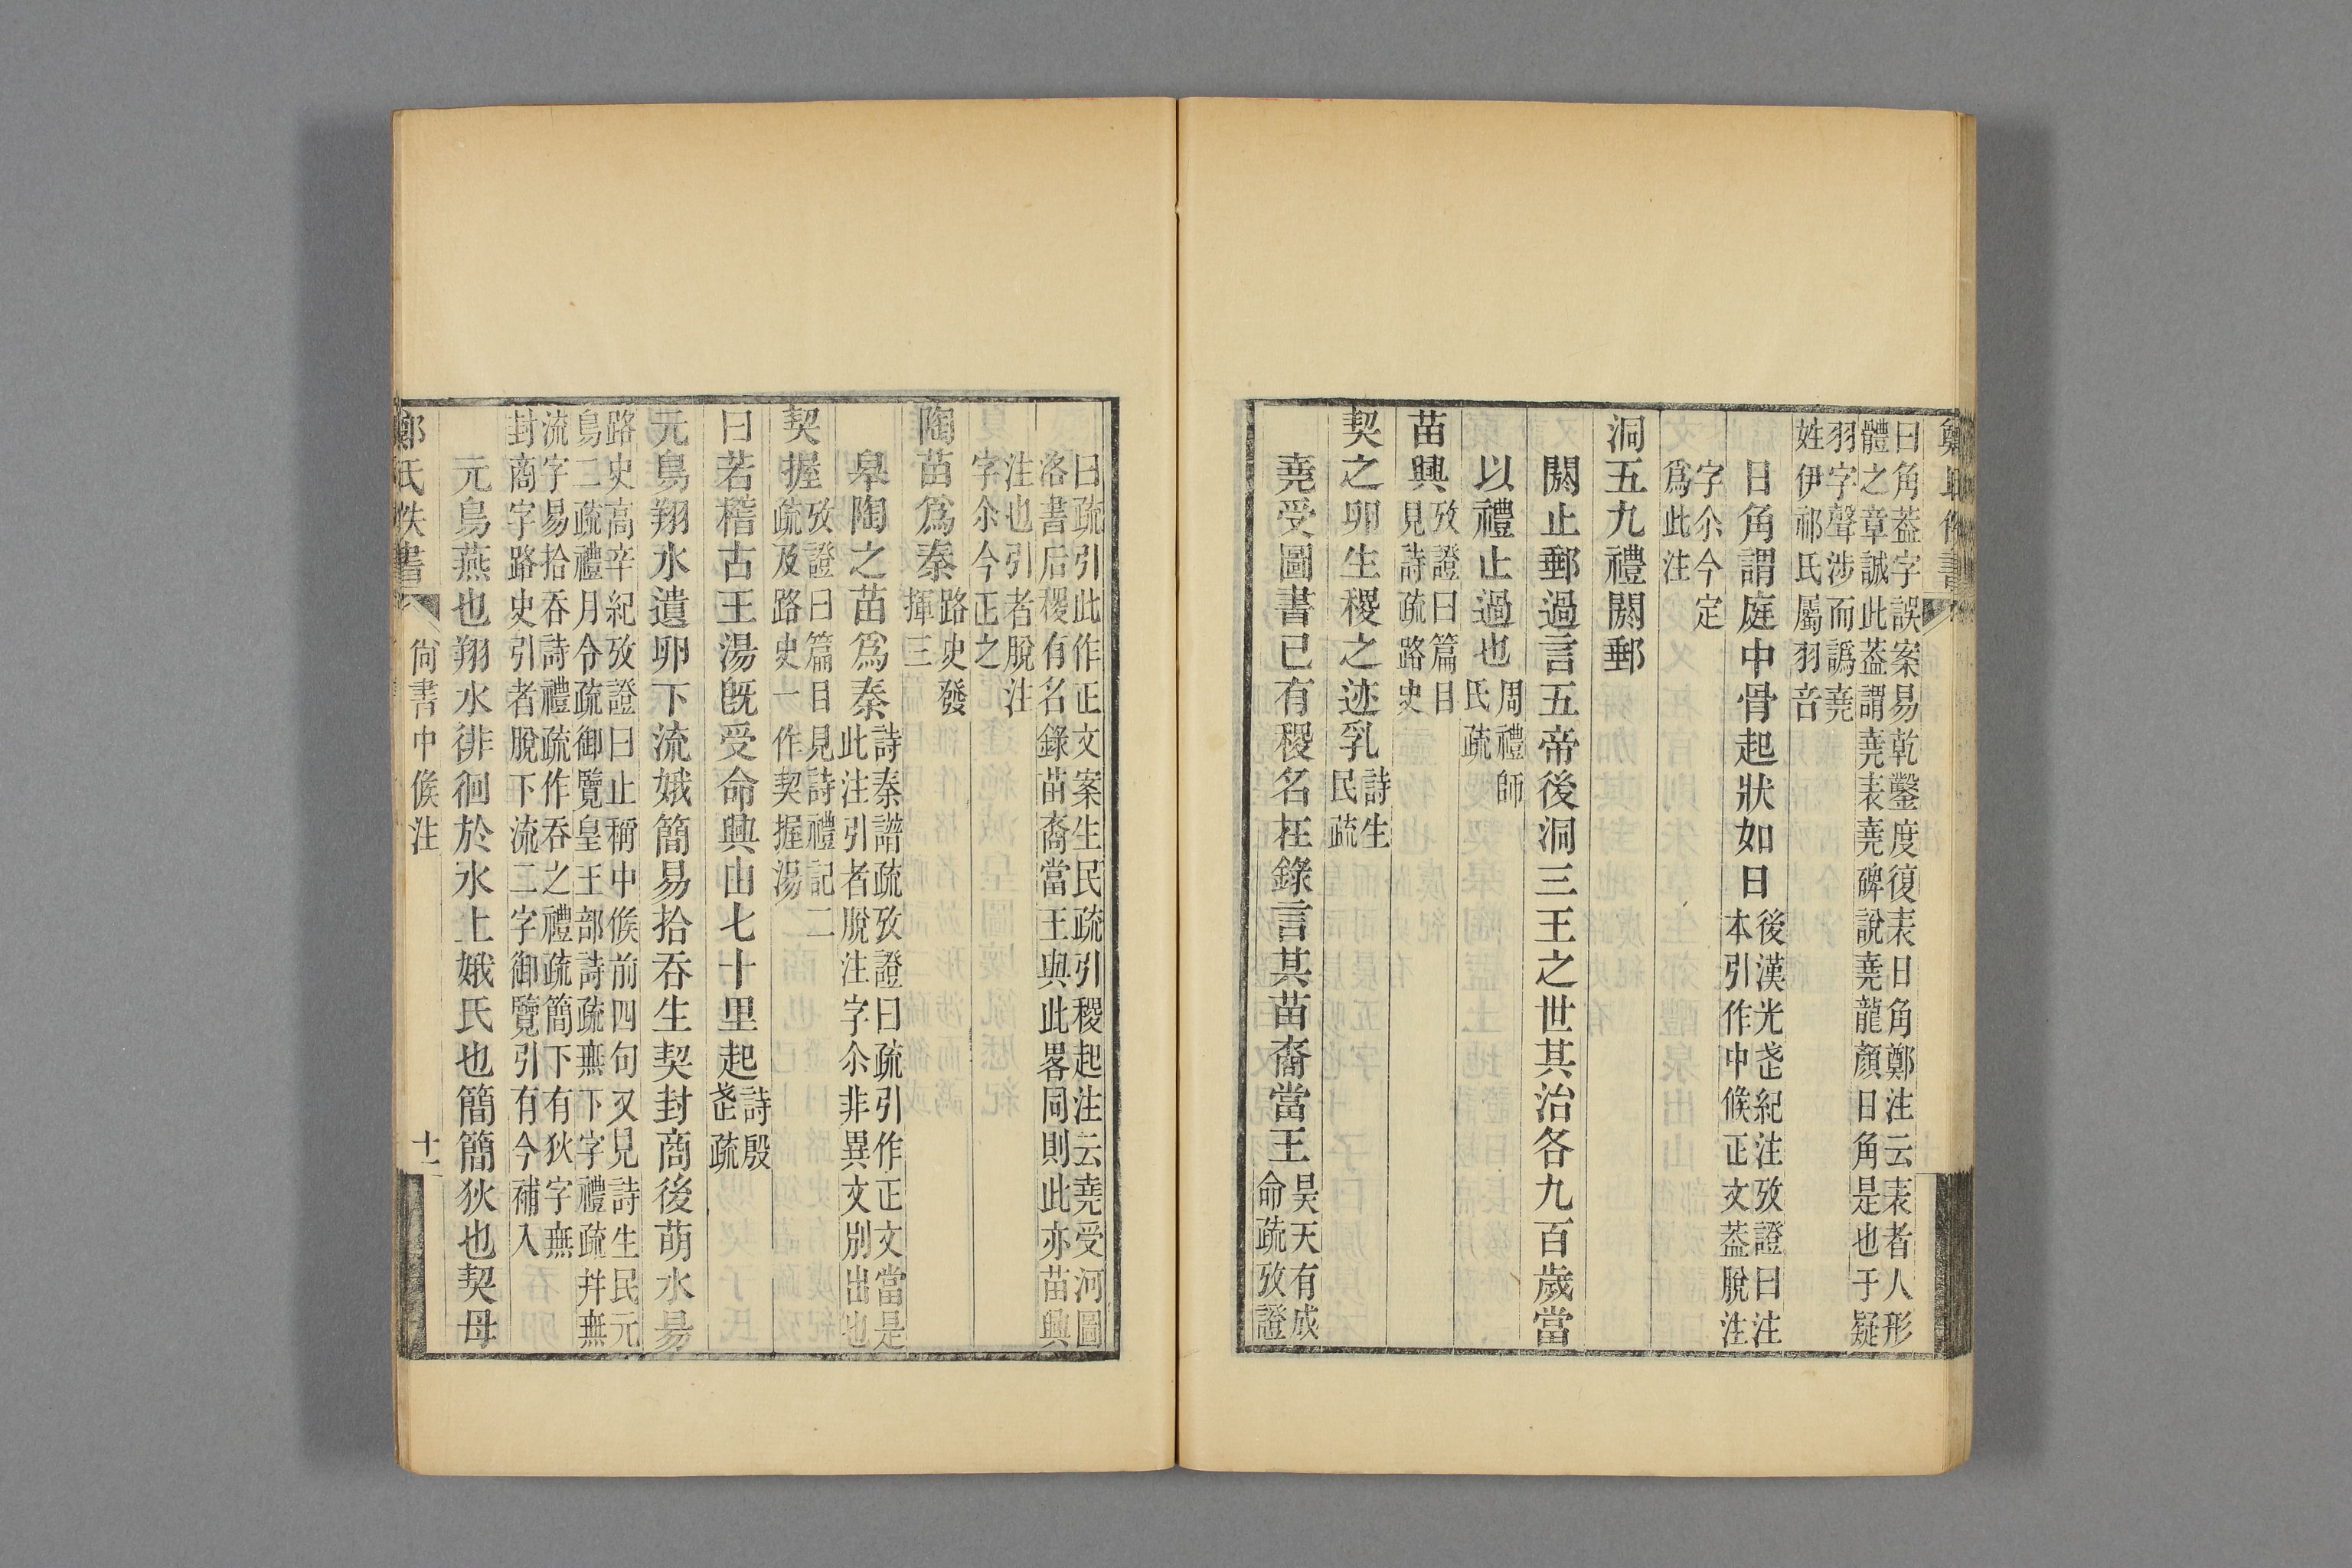 曰角葢字誤案易乾鑿度復表日角鄭注云表者人形
體之章誠此葢謂堯表堯碑說堯龍顏日角是也于疑
羽字聲涉而譌堯
姓伊祁氏屬羽音
日角謂庭中骨起狀如日後漢光武紀注攷證曰注
本引作中候正文葢脫注
字尒今定
爲此注
洞五九禮閼郵
閼止郵過言五帝後洞三王之世其治各九百歲當
以禮止過也周禮師
氏疏
苗興攷證曰篇目
見詩疏路史
契之卵生稷之迹乳詩生
民疏
堯受圖書已有稷名在錄言其苗裔當王昊天有成
命疏攷證
曰疏引此作正文案生民疏引稷起注云堯受河圖
洛書后稷有名錄苗裔當王與此畧同則此亦苗興
注也引者脫注
字尒今正之
陶苗爲秦路史發
揮三
皋陶之苗爲秦詩秦譜疏攷證曰疏引作正文當是
此注引者脫注字尒非異文別出也
契握攷證曰篇目見詩禮記二
疏及路史一作契握湯
曰若稽古王湯旣受命興由七十里起詩殷
武疏
元鳥翔水遺卵下流娀簡易拾吞生契封商後萌水易
路史高辛紀攷證曰止稱中候前四句又見詩生民元
鳥二疏禮月令疏御覽皇王部詩疏無下字禮疏幷無
流字易拾吞詩禮疏作吞之禮疏簡下有狄字無
封商字路史引者脫下流二字御覽引有今補入
元鳥燕也翔水徘徊於水上娀氏也簡簡狄也契母
鄭氏佚書
尙書中候注
十二